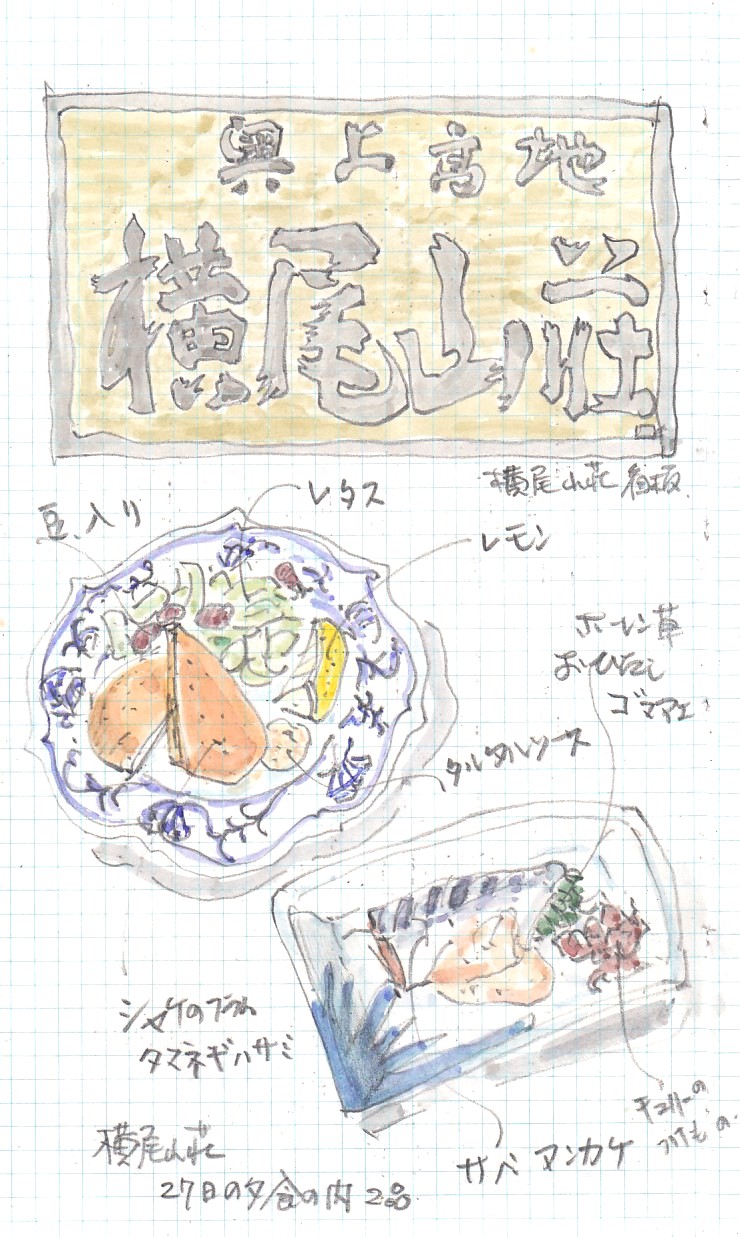 奥上高地
横尾山荘
横尾山荘 看板
レタス
豆入り
レモン
ホーレン草
おひたし
ゴマアエ
タルタルソース
シャケのフライ
タマネギハサミ
キュリーの
つけもの
サバ アンカケ
横尾山荘
27日の夕食の内 2品